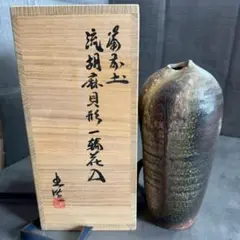 備前土
流胡麻貝形一輪花入